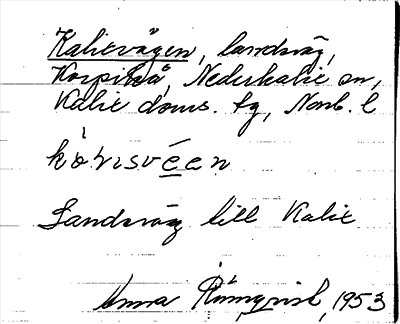 Kalixvägen, landsväg,
Korpikå, Nederkalix sn,
Kalix doms. tg, Norrb. l
Landsväg till Kalix
Anna Rönnqvist, 1953